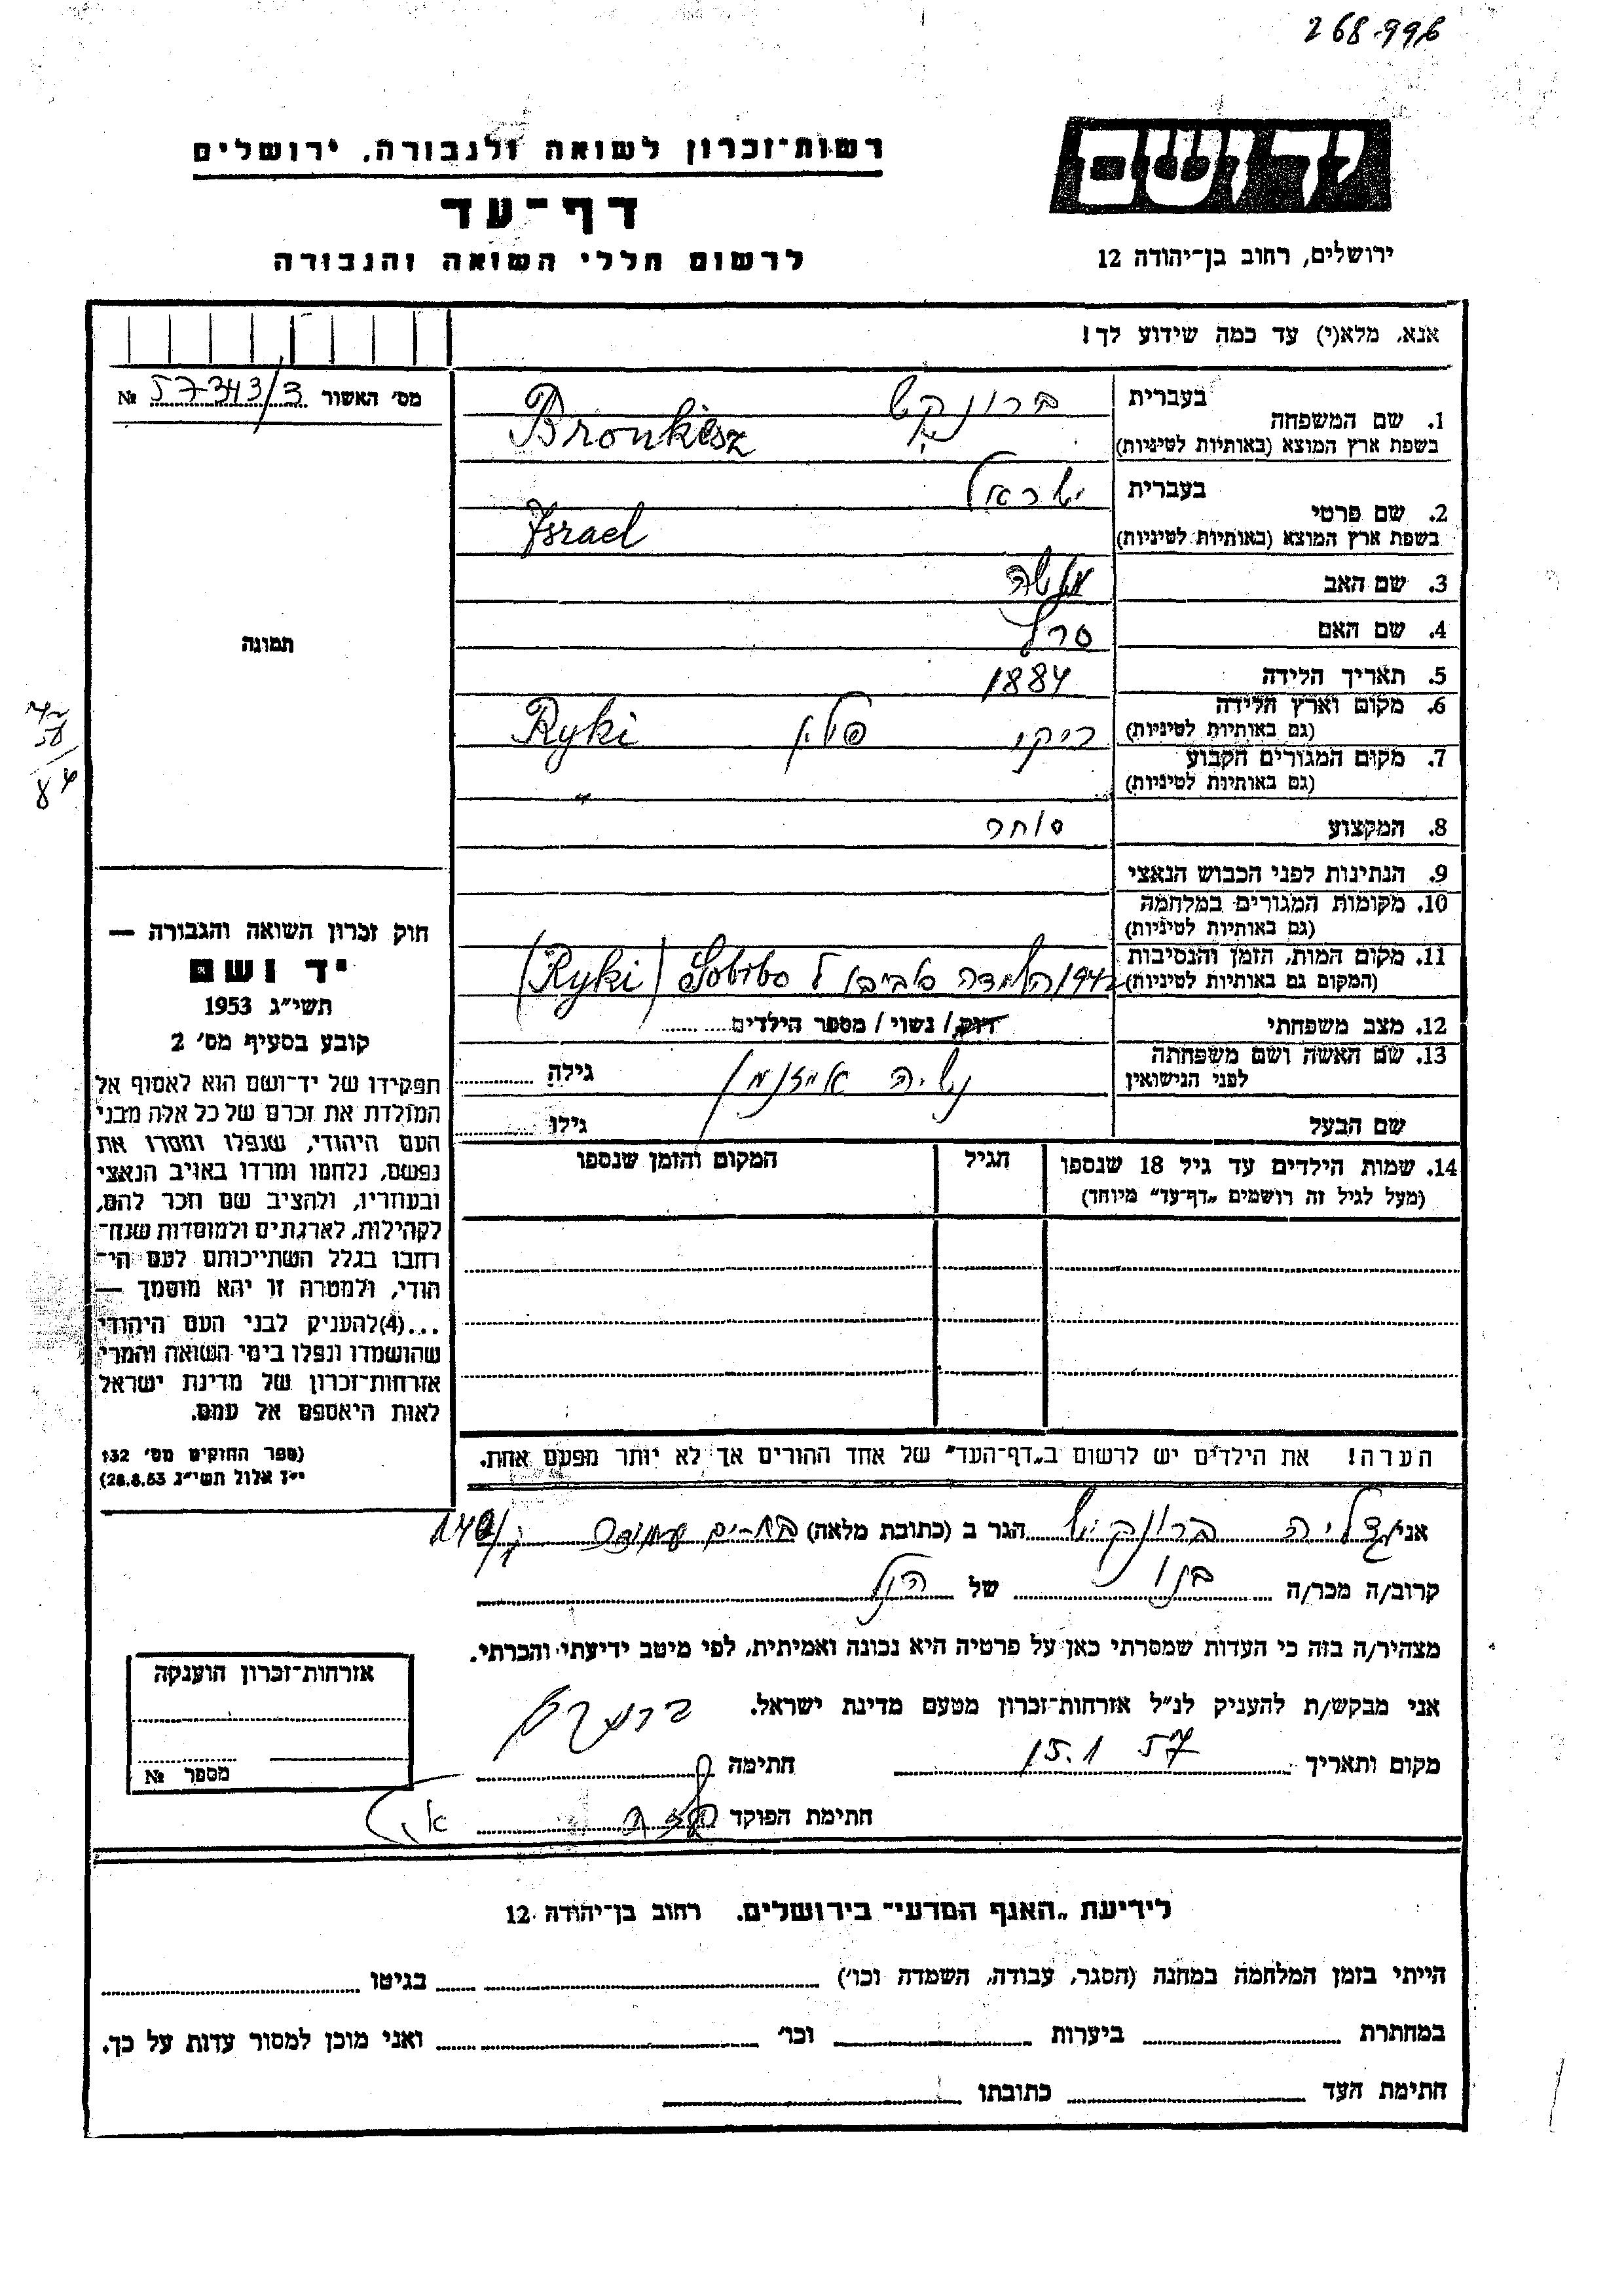 268-996
יד ושם
רשות־זכרון לשואה ולגבורה, ירושלים
דף־עד
לרשום חללי השואה והגבורה
ירושלים, רחוב בן־יהודה 12
אנא, מלא(י) עד כמה שידוע לך!
מס׳ האשור 57343/3 №
בעברית ברונקש
1. שם המשפחה
בשפת ארץ המוצא (באותיות לטיניות) Bronkesz
בעברית ישראל
2. שם פרטי
בשפת ארץ המוצא (באותיות לטיניות) Israel
3. שם האב משה
4. שם האם סרל
תמונה
5. תאריך הלידה 1884
6. מקום וארץ הלידה
(גם באותיות לטיניות) ריקי פולין Ryki
7. מקום המגורים הקבוע
(גם באותיות לטיניות) "
8. המקצוע סוחר
9. הנתינות לפני הכבוש הנאצי
10. מקומות המגורים במלחמה
(גם באותיות לטיניות)
11. מקום המות, הזמן והנסיבות
(המקום גם באותיות לטיניות) 1942 Sobibor (Ryki)
12. מצב משפחתי רווק / נשוי / מספר הילדים
13. שם האשה ושם משפחתה
לפני הנישואין גילה
שם הבעל גילו
14. שמות הילדים עד גיל 18 שנספו הגיל המקום והזמן שנספו
(מעל לגיל זה רושמים „דף־עד״ מיוחד)
הערה! את הילדים יש לרשום ב„דף־העד״ של אחד ההורים אך לא יותר מפעם אחת.
חוק זכרון השואה והגבורה —
יד ושם
תשי״ג 1953
קובע בסעיף מס׳ 2
תפקידו של יד־ושם הוא לאסוף אל
המולדת את זכרם של כל אלה מבני
העם היהודי, שנפלו ומסרו את
נפשם, נלחמו ומרדו באויב הנאצי
ובעוזריו, ולהציב שם וזכר להם,
לקהילות, לארגונים ולמוסדות שנח־
רבו בגלל השתייכותם לעם הי־
הודי, ולמטרה זו יהא מוסמך —
...(4) להעניק לבני העם היהודי
שהושמדו ונפלו בימי השואה והמרי
אזרחות־זכרון של מדינת ישראל
לאות היאספם אל עמם.
(ספר החוקים מס׳ 132
י״ז אלול תשי״ג 28.8.53)
אני גדליה ברונקש הגר ב (כתובת מלאה)
קרוב/ה מכר/ה בנו של הנ״ל
מצהיר/ה בזה כי העדות שמסרתי כאן על פרטיה היא נכונה ואמיתית, לפי מיטב ידיעתי והכרתי.
אני מבקש/ת להעניק לנ״ל אזרחות־זכרון מטעם מדינת ישראל.
מקום ותאריך 15.1 57 חתימה
חתימת הפוקד
אזרחות־זכרון הוענקה
מספר №
לידיעת „האגף המדעי״ בירושלים. רחוב בן־יהודה 12
הייתי בזמן המלחמה במחנה (הסגר, עבודה, השמדה וכו׳) בגיטו
במחתרת ביערות וכו׳ ואני מוכן למסור עדות על כך.
חתימת העד כתובתו